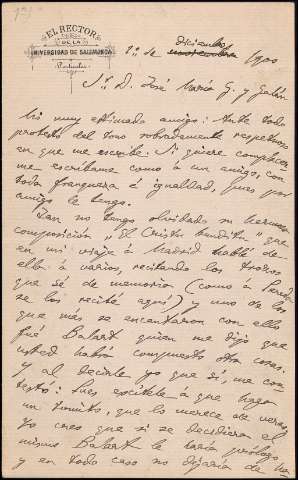 EL RECTOR
DE LA
UNIVERSIDAD DE SALAMANCA
Particular
1º de diciembre 1900
Sr. D. José María G. y Galán
Mi muy estimado amigo: Ante todo
protesto del tono sobradamente respetuoso
en que me escribe. Si quiere complacerme
escríbame como á un amigo, con
toda franqueza é igualdad, pues por
amigo le tengo.
Tan no tengo olvidada su hermosa
composición "El Cristu benditu" que
en mi viaje á Madrid hablé de
ella á varios, recitando los trozos
que sé de memoria (como á Pereda
se los recité aquí) y uno de los
que más se encantaron con ella
fué Balart quien me dijo que
usted habría compuesto otras cosas.
Y al decirle yo que sí, me con-
testó: Pues escíbale á que haga
un tomito, que lo merece de veras.
Yo creo que si se decidiera el
mismo Balart le haría prólogo
y en todo caso no dejaría de